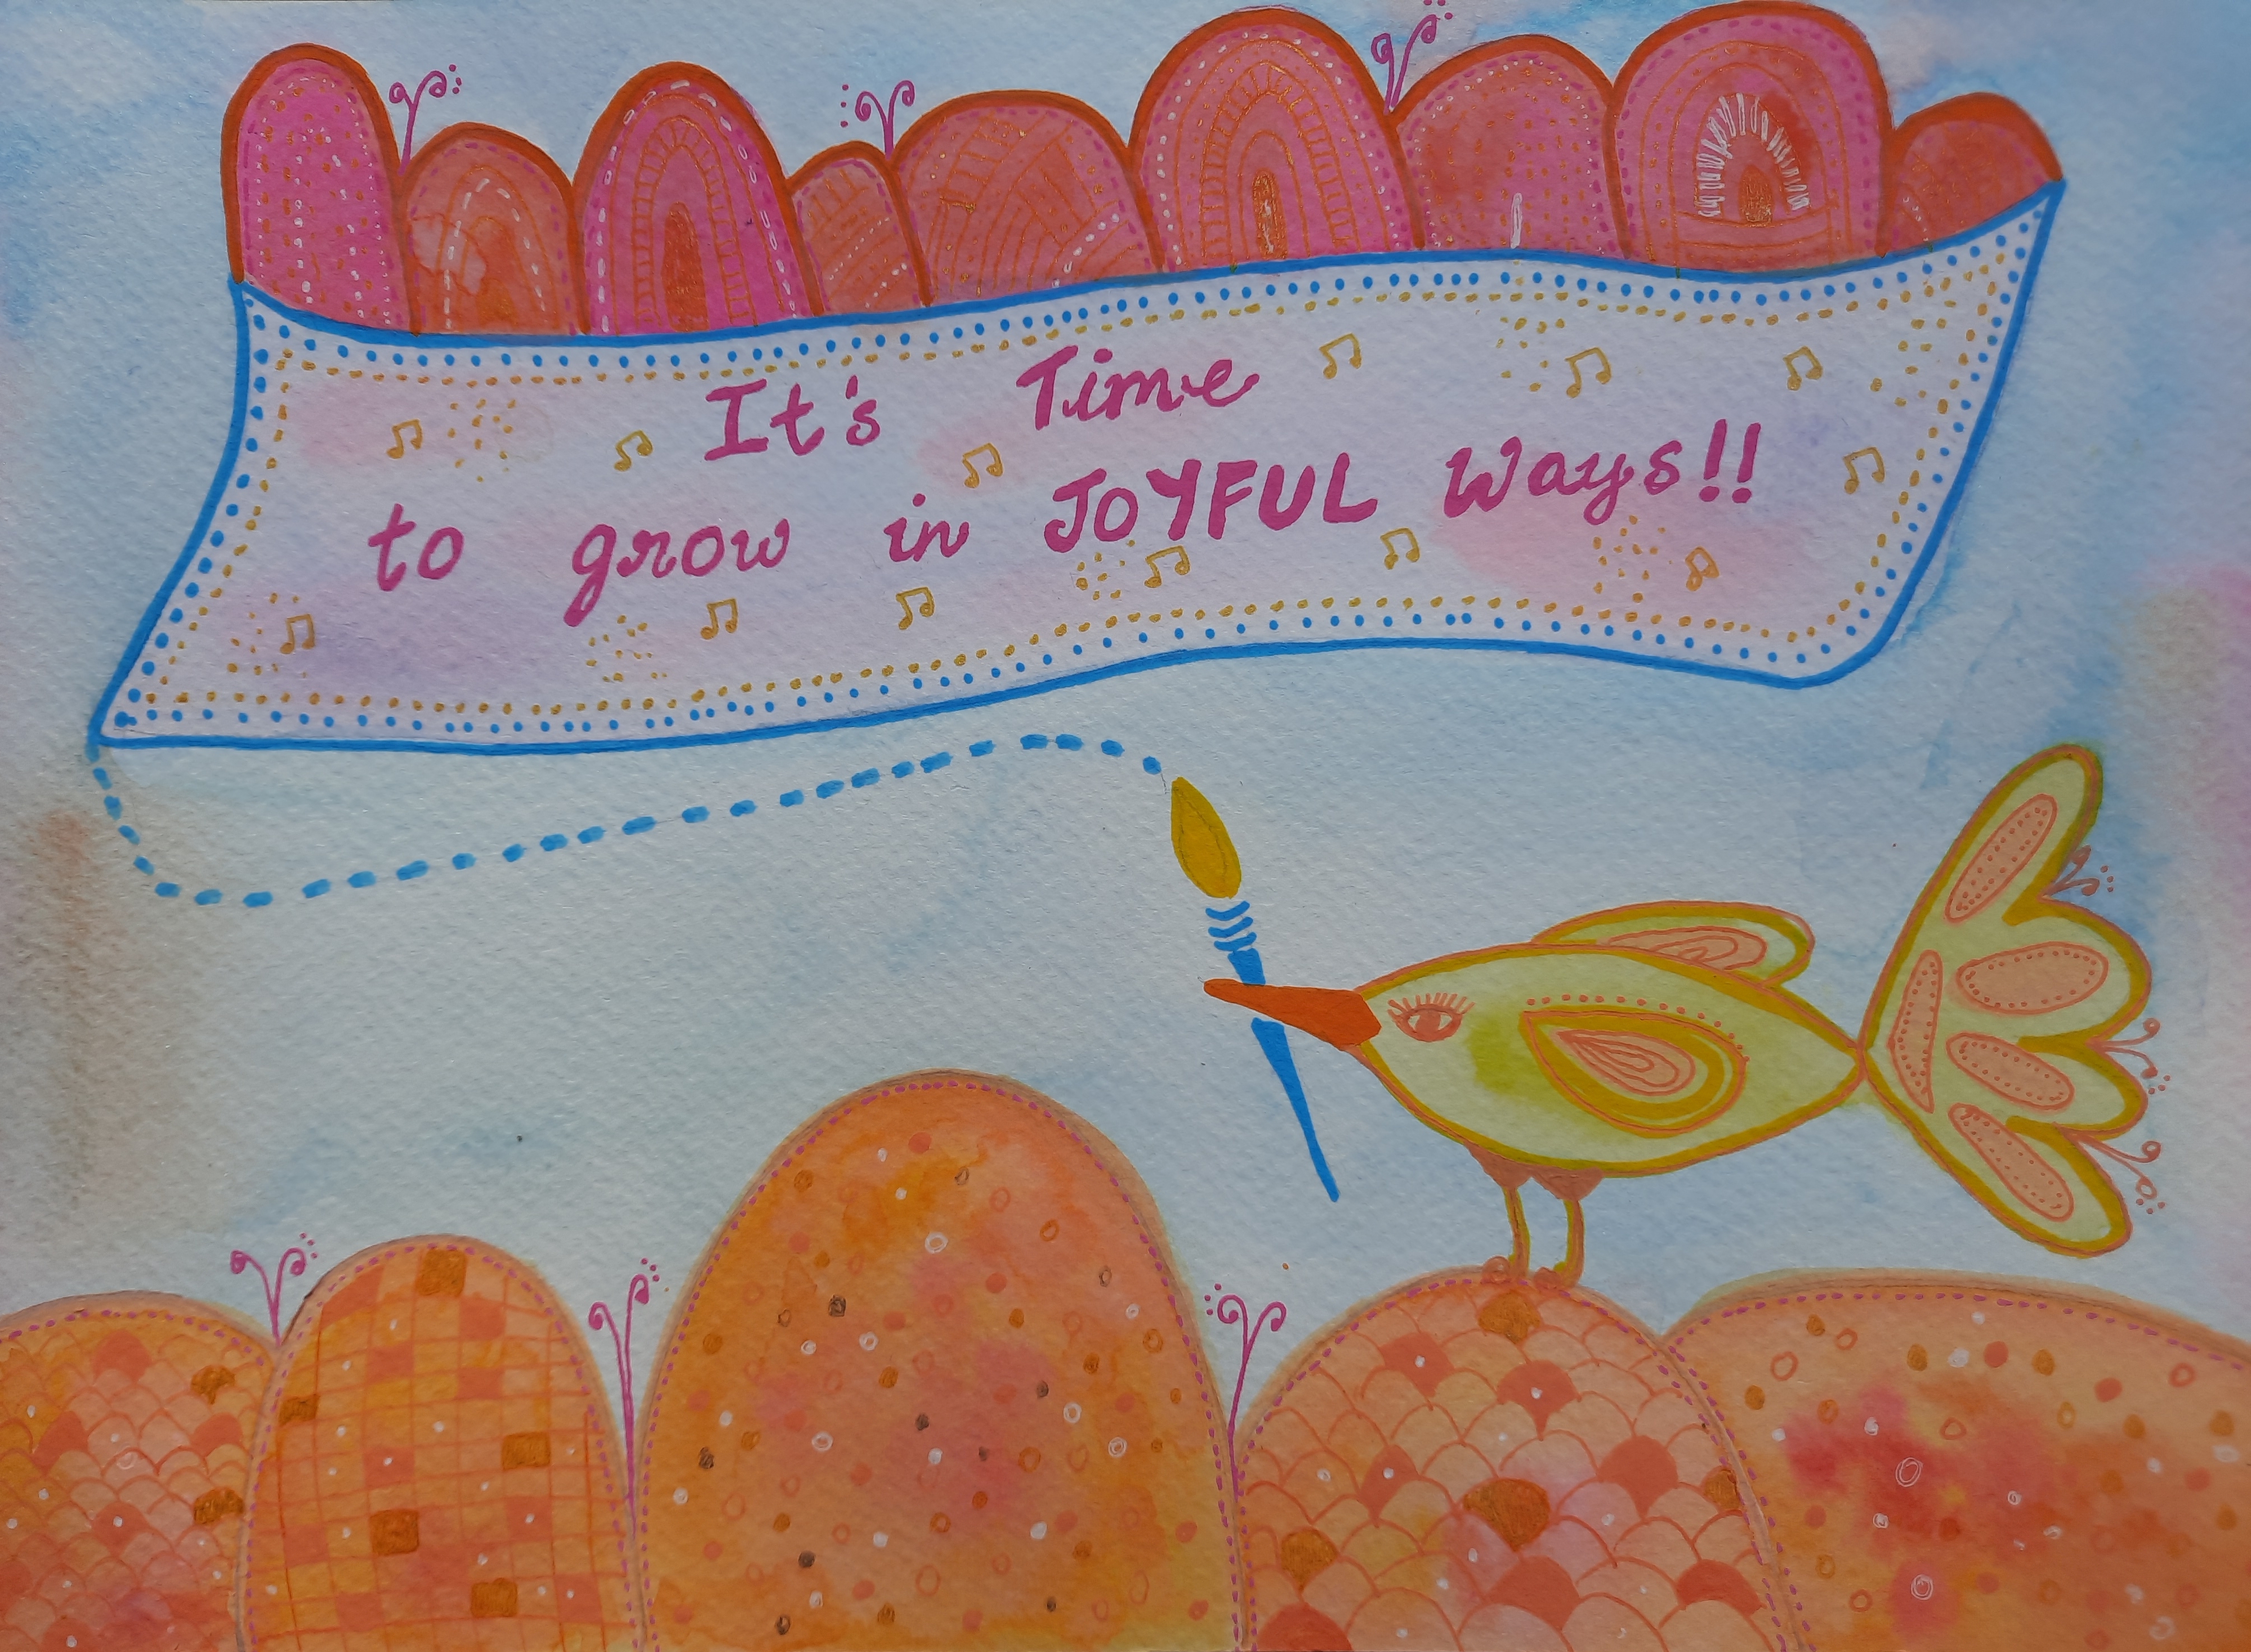 It's Time
to grow in JOYFUL Ways!!